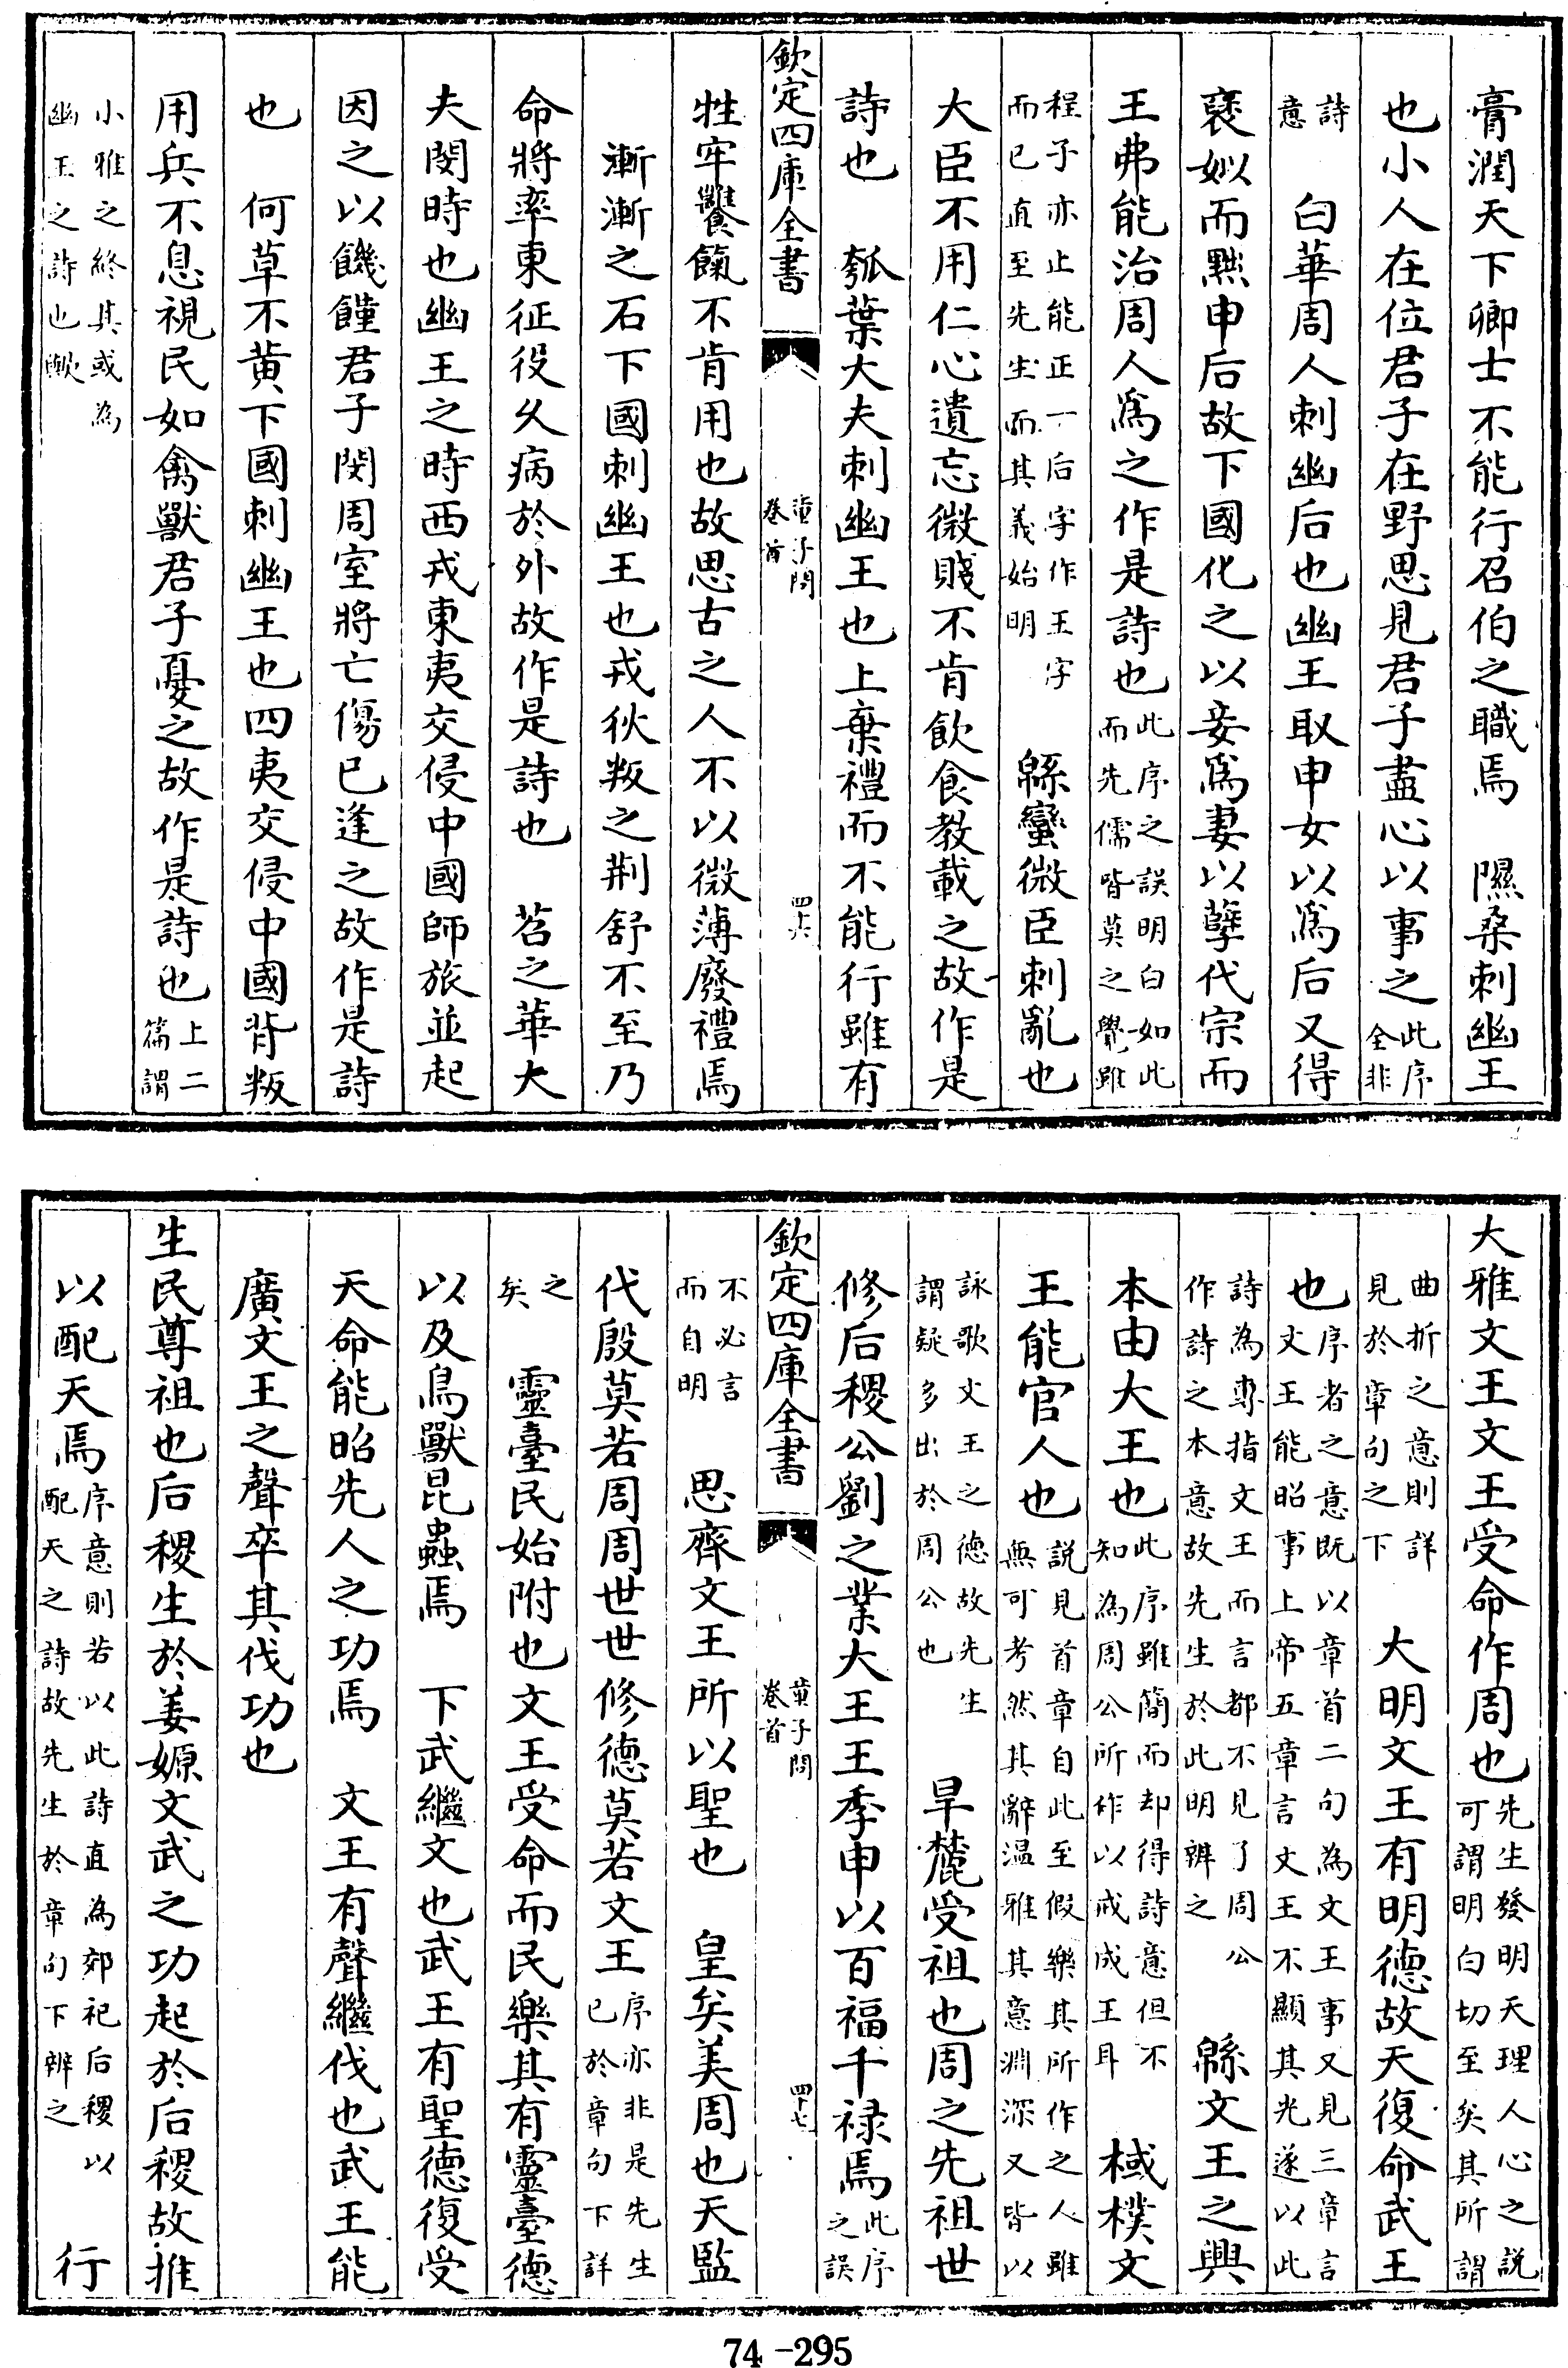 膏潤天下卿士不能行召伯之職焉　隰桑刺幽王
也小人在位君子在野思見君子盡心以事之此序全非
詩意　白華周人刺幽后也幽王取申女以爲后又得
褒姒而黜申后故下國化之以妾爲妻以孽代宗而
王弗能治周人爲之作是詩也此序之誤明白如此而先儒皆莫之覺雖
程子亦止能正一后字作王字而已直至先生而其義始明　緜蠻微臣刺亂也
大臣不用仁心遺忘微賤不肯飲食教載之故作是
詩也　瓠葉大夫刺幽王也上棄禮而不能行雖有
欽定四庫全書　童子問卷首　四十六
牲牢饔餼不肯用也故思古之人不以微薄廢禮焉
漸漸之石下國刺幽王也戎狄叛之荆舒不至乃
命將率東征役久病於外故作是詩也　苕之華大
夫閔時也幽王之時西戎東夷交侵中國師旅並起
因之以饑饉君子閔周室將亡傷已逢之故作是詩
也　何草不黄下國刺幽王也四夷交侵中國背叛
用兵不息視民如禽獸君子憂之故作是詩也上二篇謂
小雅之終其或為幽王之詩也歟
大雅文王文王受命作周也先生發明天理人心之説可謂明白切至矣其所謂
曲折之意則詳見於章句之下　大明文王有明德故天復命武王
也序者之意既以章首二句為文王事又見三章言文王能昭事上帝五章言文王不顯其光遂以此
詩為專指文王而言都不見了周公作詩之本意故先生於此明辨之　緜文王之興
本由大王也此序雖簡而却得詩意但不知為周公所作以戒成王耳　棫樸文
王能官人也説見首章自此至假樂其所作之人雖無可考然其辭温雅其意淵深又皆以
詠歌文王之德故先生謂疑多出於周公也　旱麓受祖也周之先祖世
修后稷公劉之業大王王季申以百福千禄焉此序之誤
欽定四庫全書　童子問卷首　四十七
不必言而自明　思齊文王所以聖也　皇矣美周也天監
代殷莫若周周世世修德莫若文王序亦非是先生已於章句下詳
之矣　靈臺民始附也文王受命而民樂其有靈臺德
以及鳥獸昆蟲焉　下武繼文也武王有聖德復受
天命能昭先人之功焉　文王有聲繼伐也武王能
廣文王之聲卒其伐功也
生民尊祖也后稷生於姜嫄文武之功起於后稷故推
以配天焉序意則若以此詩直為郊祀后稷以配天之詩故先生於章句下辨之　行
74-295